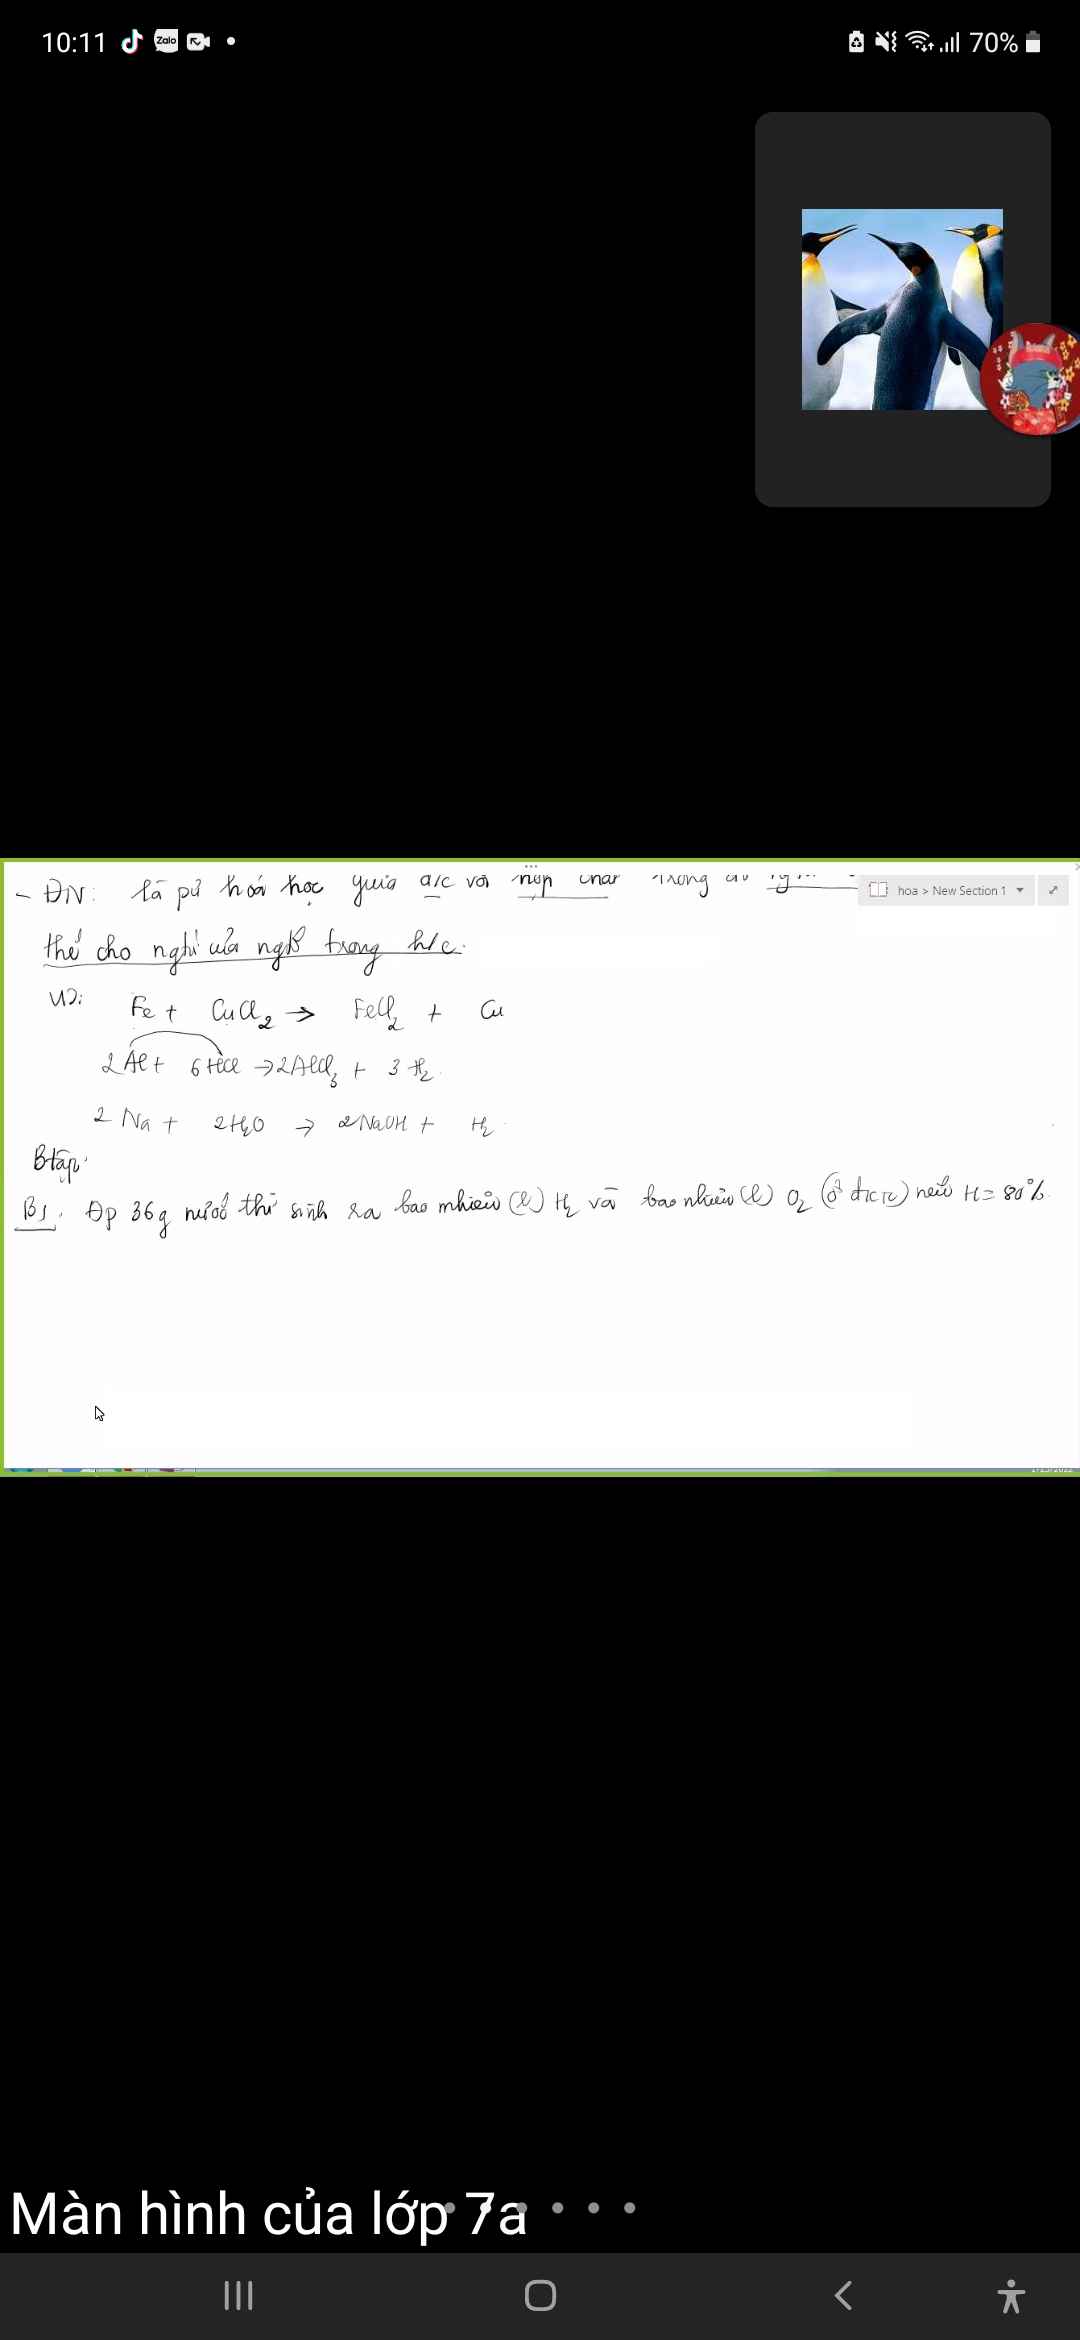 10:11
Zalo
70%
- ĐN: là pứ hoá học giữa đ/c với hợp chất trong đó
hoa > New Section 1
thế cho ngtử của ngtố trong h/c.
VD:
Fe + CuCl2 → FeCl2 + Cu
2Al + 6HCl → 2AlCl3 + 3H2.
2Na + 2H2O → 2NaOH + H2.
Btập:
B1. Đp 36g nước thì sinh ra bao nhiêu (l) H2 và bao nhiêu (l) O2 (ở đktc) nếu H = 80%.
Màn hình của lớp 7a